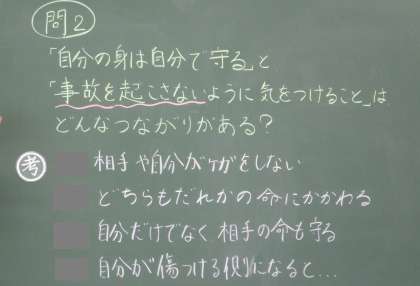 問2
「自分の身は自分で守る」と
「事故を起こさないように気をつけること」は
どんなつながりがある?
考 相手や自分がケガをしない
どちらもだれかの命にかかわる
自分だけでなく相手の命も守る
自分が傷つける側になると…